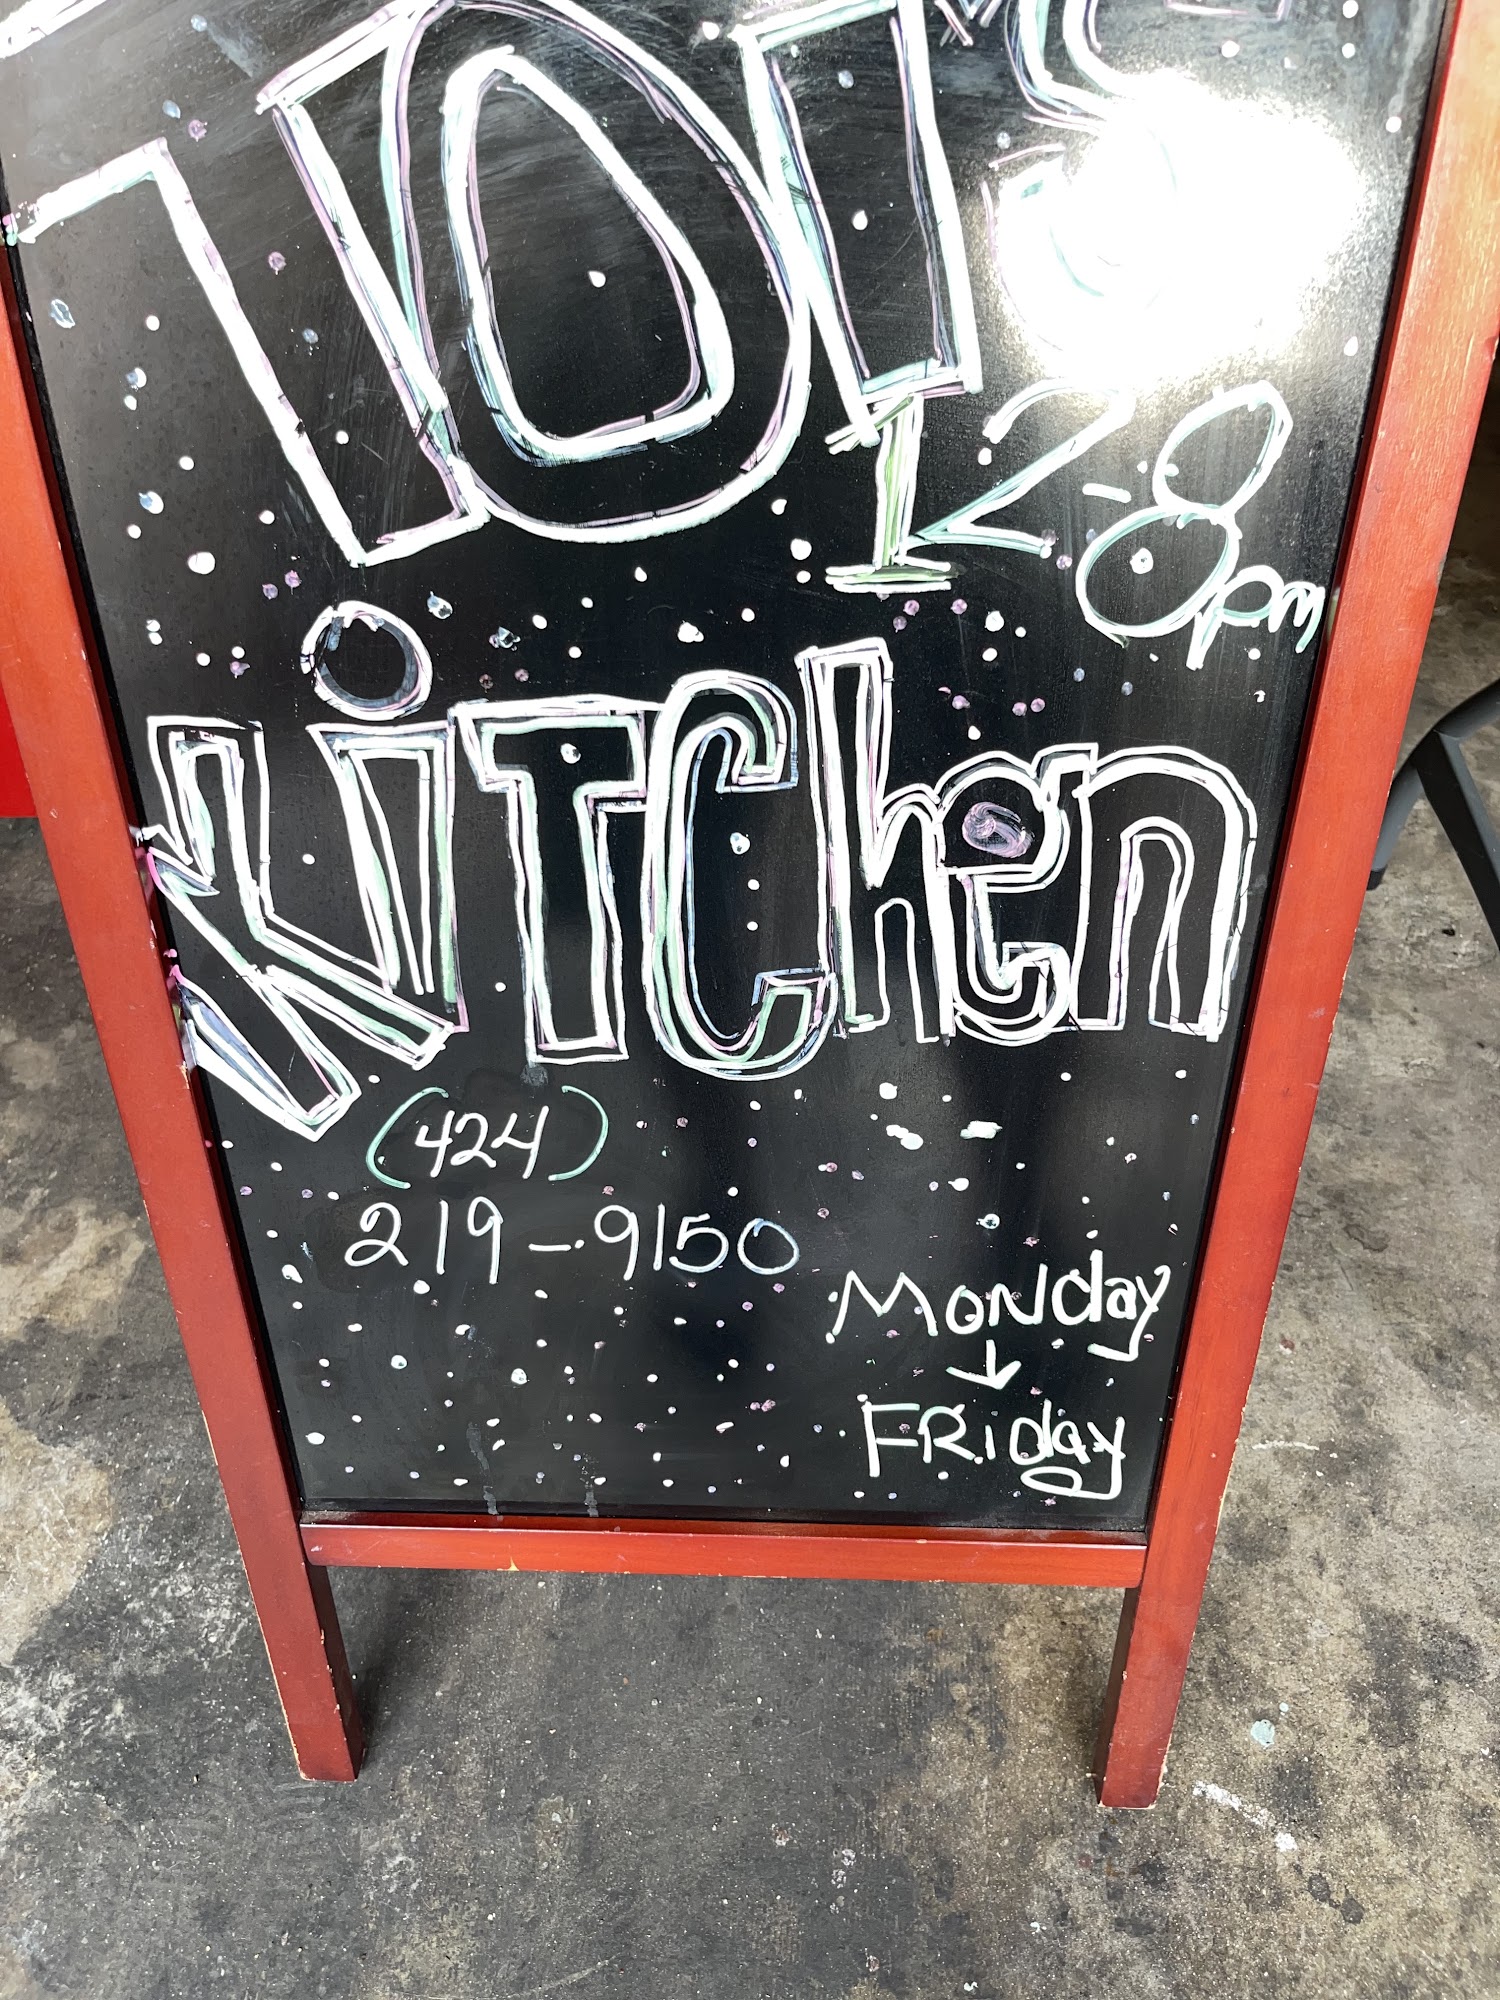 12-8pm
KiTChen
(424)
219-9150
MoNday
FRiday